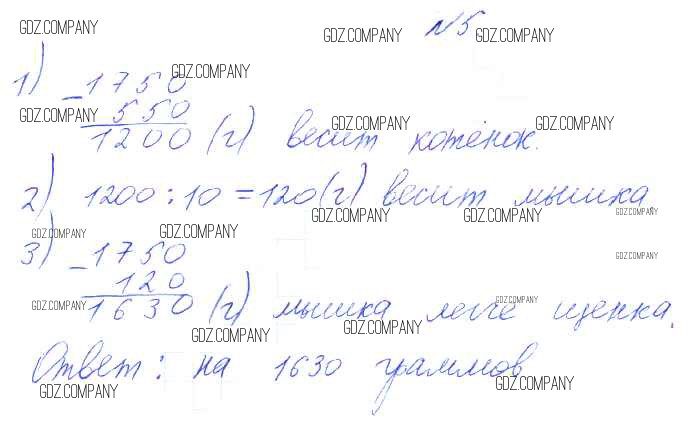 GDZ.COMPANY GDZ.COMPANY №5 GDZ.COMPANY
1) -1750 GDZ.COMPANY
GDZ.COMPANY 550 GDZ.COMPANY GDZ.COMPANY
1200 (г) весит котёнок.
2) 1200 : 10 = 120 (г) весит мышка
GDZ.COMPANY GDZ.COMPANY GDZ.COMPANY
GDZ.COMPANY GDZ.COMPANY
3) -1750 GDZ.COMPANY
120
GDZ.COMPANY 1630 (г) мышка легче щенка. GDZ.COMPANY
GDZ.COMPANY GDZ.COMPANY
Ответ: на 1630 граммов
GDZ.COMPANY GDZ.COMPANY